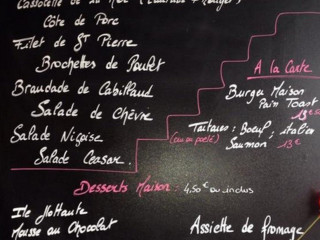 Cassolette de la Mer
Côte de Porc
Filet de St Pierre
Brochettes de Poulet
Brandade de Cabillaud
Salade de Chèvre
Salade Niçoise
Salade Ceasar.
A la Carte
Burger Maison
Pain Toast
13€
Tartares : Boeuf ; italien
Saumon 13€
Desserts Maison : 4,50€ ou inclus
Ile flottante
Mousse au Chocolat
Assiette de fromage